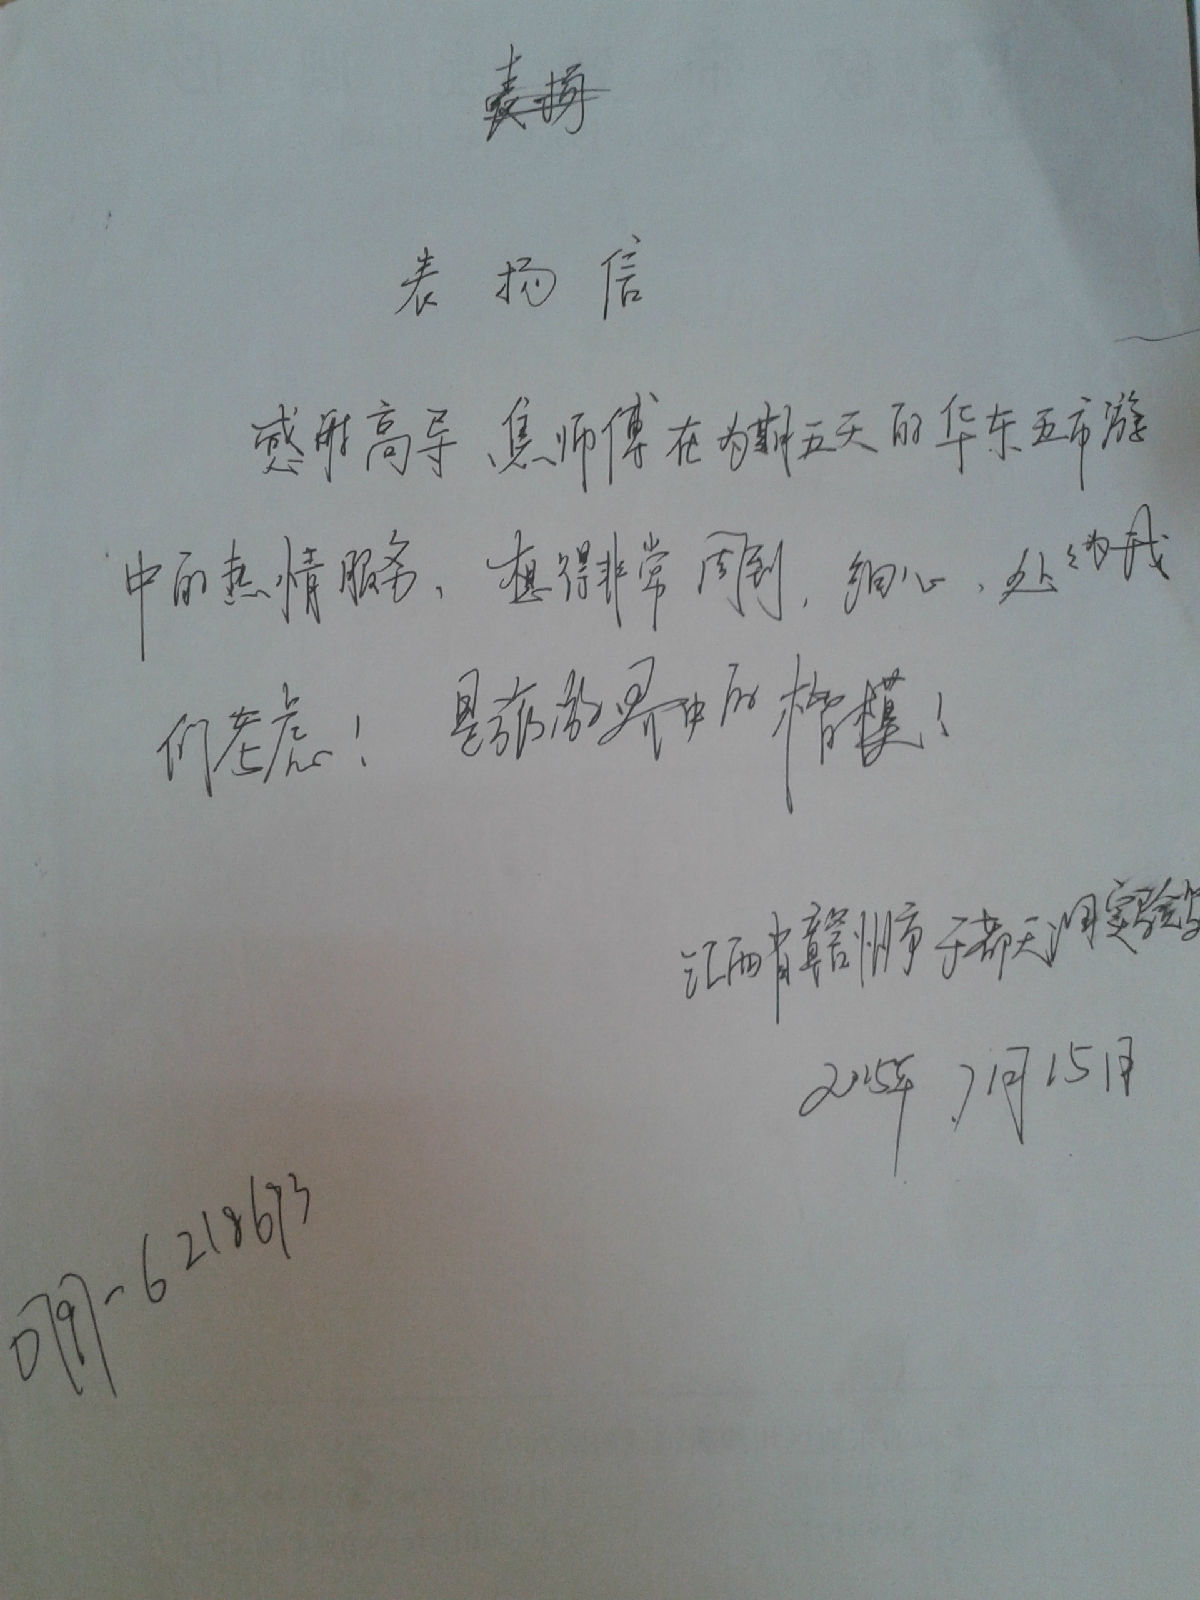 表扬信
感谢高导 焦师傅在为期五天的华东五市游
中的热情服务、想得非常周到、细心、处处为我
们考虑! 是旅游界中的楷模!
江西省赣州市于都天润实验学
2015年7月15日
0797-6218673